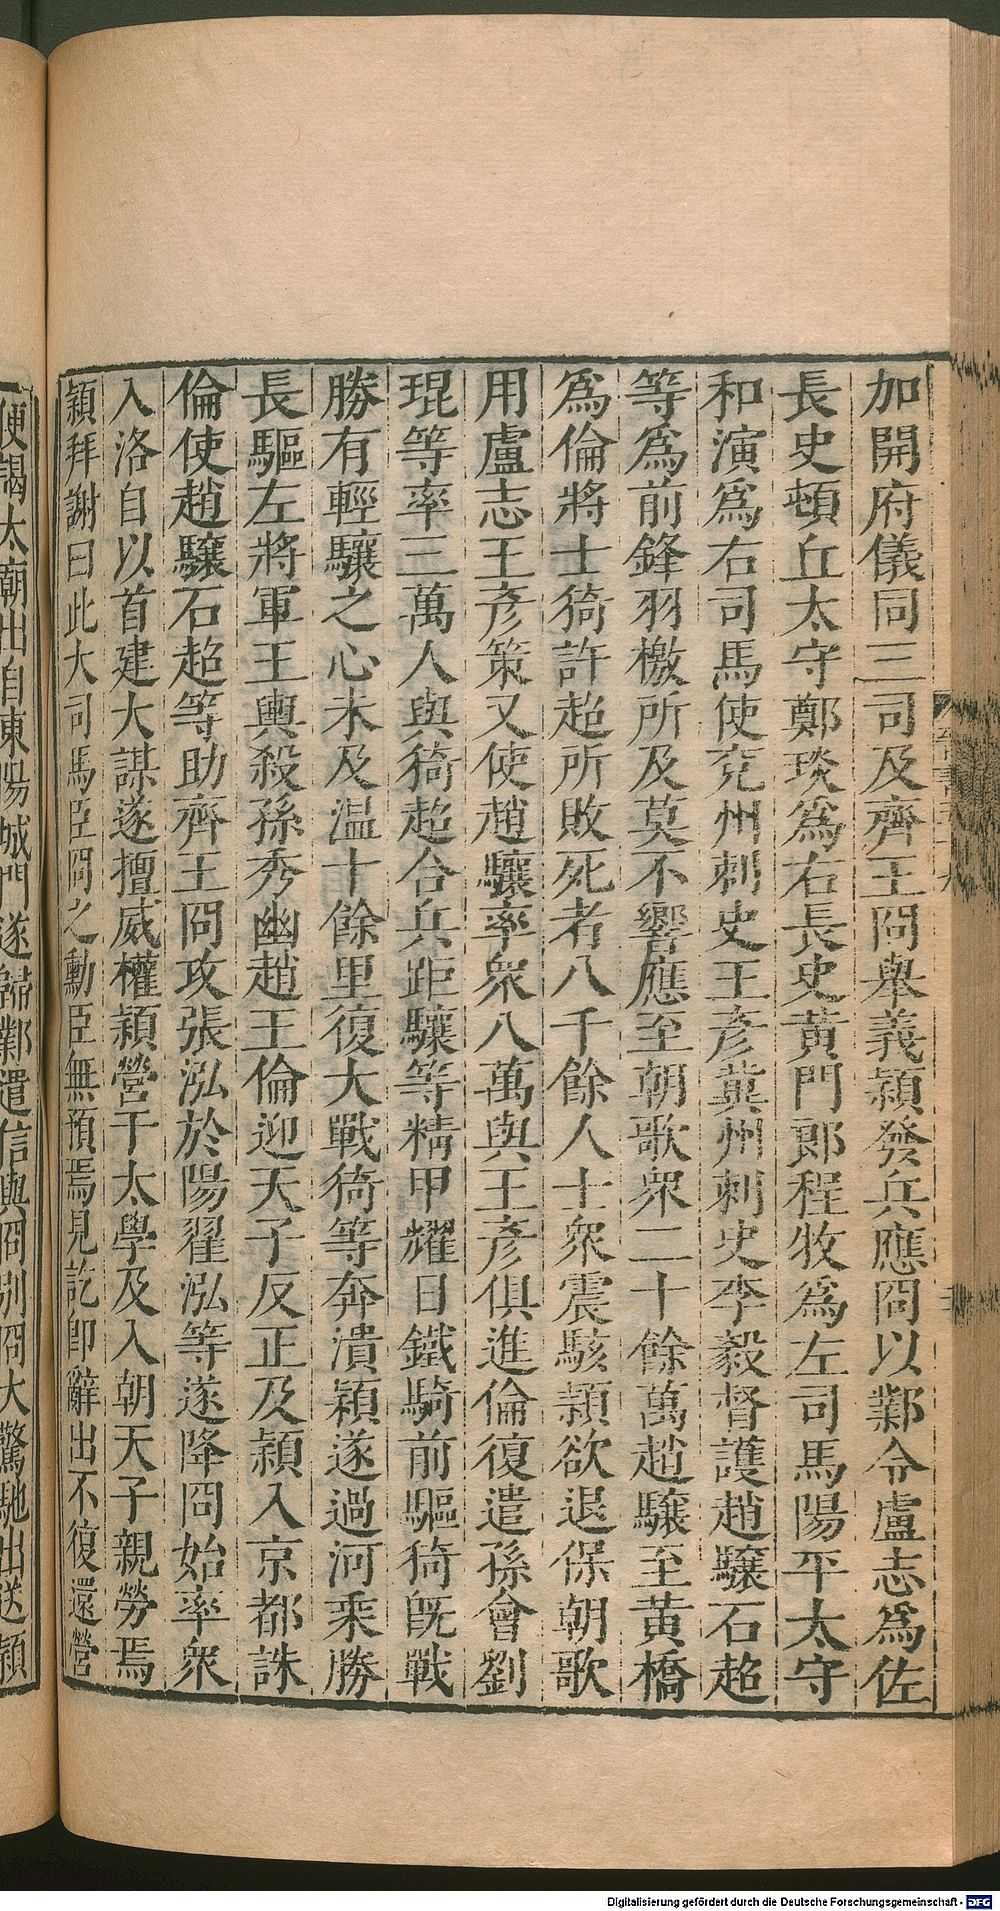 加開府儀同三司及齊王冏舉義頴發兵應冏以鄴令盧志爲佐
長史頓丘太守鄭琰爲右長史黃門郎程牧爲左司馬陽平太守
和演爲右司馬使兗州刺史王彥冀州刺史李毅督護趙驤石超
等爲前鋒羽檄所及莫不響應至朝歌衆二十餘萬趙驤至黃橋
爲倫將士猗許超所敗死者八千餘人士衆震駭頴欲退保朝歌
用盧志王彥策又使趙驤率衆八萬與王彥俱進倫復遣孫會劉
琨等率三萬人與猗超合兵距驤等精甲耀日鐵騎前驅猗旣戰
勝有輕驤之心未及温十餘里復大戰猗等奔潰頴遂過河乘勝
長驅左將軍王輿殺孫秀幽趙王倫迎天子反正及頴入京都誅
倫使趙驤石超等助齊王冏攻張泓於陽翟泓等遂降冏始率衆
入洛自以首建大謀遂擅威權頴營于太學及入朝天子親勞焉
頴拜謝曰此大司馬臣冏之勳臣無預焉見訖卽辭出不復還營
便謁太廟出自東陽城門遂歸鄴遣信與冏別冏大驚馳出送頴
Digitalisierung gefördert durch die Deutsche Forschungsgemeinschaft - DFG